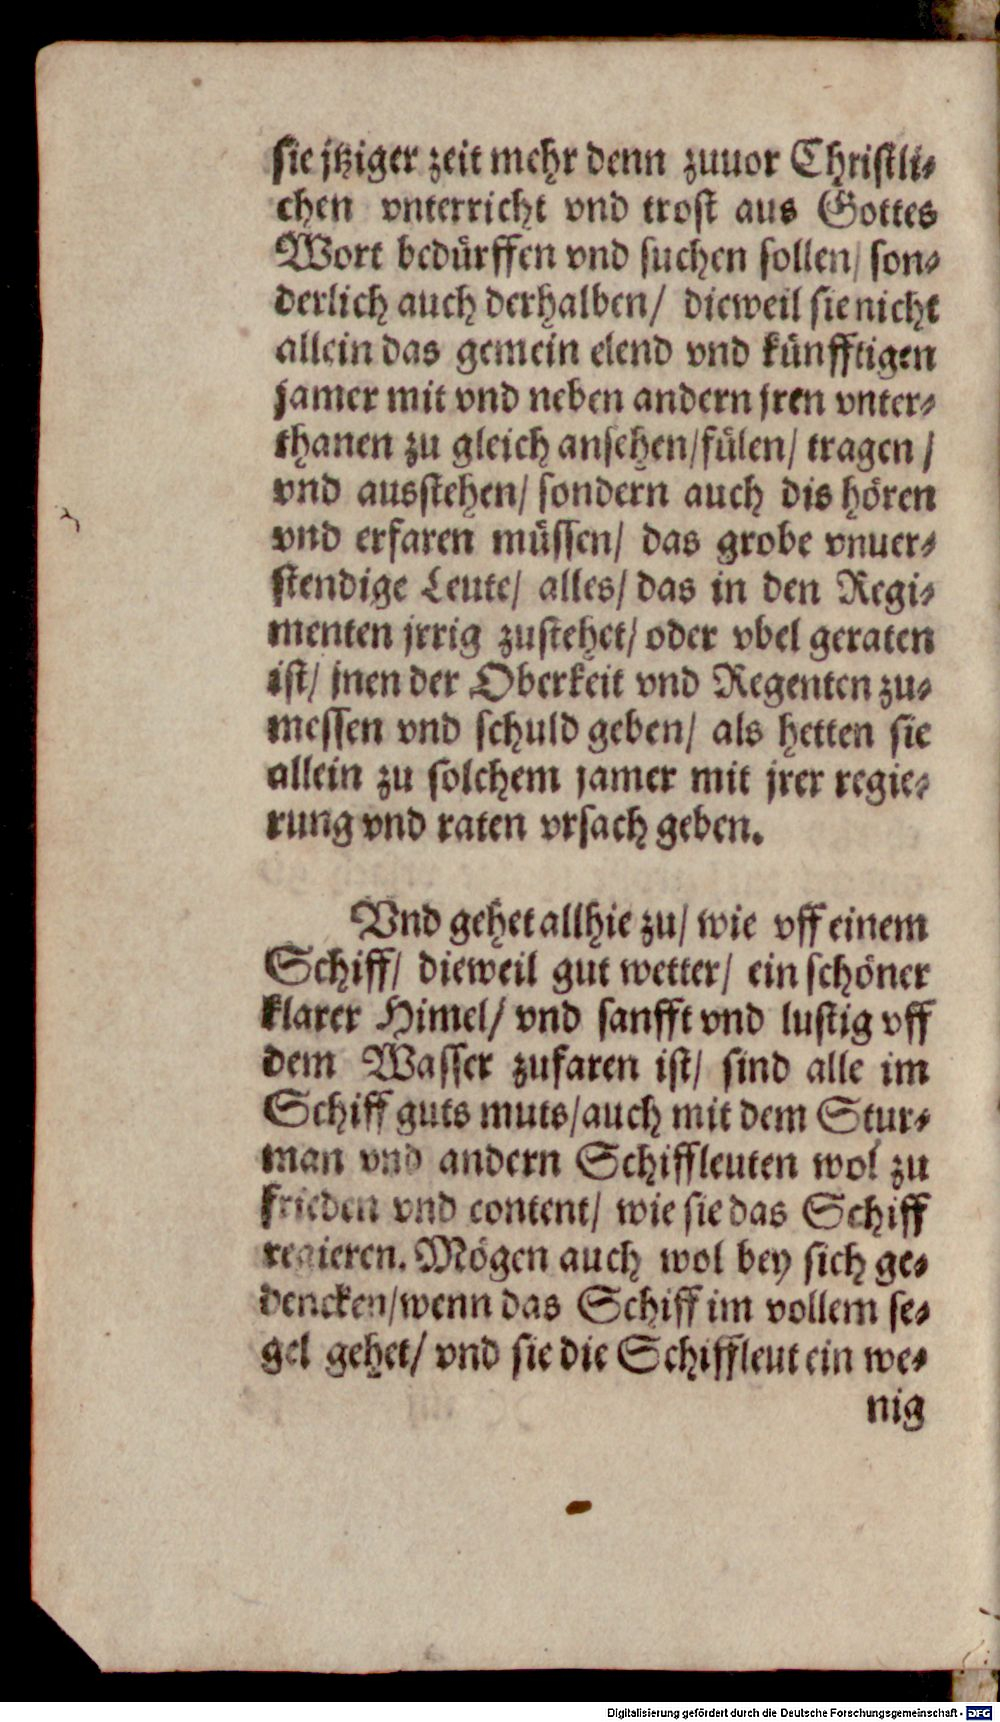 sie jtziger zeit mehr denn zuuor Christli-
chen vnterricht vnd trost aus Gottes
Wort bedürffen vnd suchen sollen/ son-
derlich auch derhalben/ dieweil sie nicht
allein das gemein elend vnd künfftigen
jamer mit vnd neben andern jren vnter-
thanen zu gleich ansehen/fülen/ tragen/
vnd ausstehen/ sondern auch dis hören
vnd erfaren müssen/ das grobe vnuer-
stendige Leute/ alles/ das in den Regi-
menten jrrig zustehet/ oder vbel geraten
ist/ jnen der Oberkeit vnd Regenten zu-
messen vnd schuld geben/ als hetten sie
allein zu solchem jamer mit jrer regie-
rung vnd raten vrsach geben.
Vnd gehet allhie zu/ wie vff einem
Schiff/ dieweil gut wetter/ ein schöner
klarer Himel/ vnd sanfft vnd lustig vff
dem Wasser zufaren ist/ sind alle im
Schiff guts muts/auch mit dem Stur-
man vnd andern Schiffleuten wol zu
frieden vnd content/ wie sie das Schiff
regieren. Mögen auch wol bey sich ge-
dencken/wenn das Schiff im vollem se-
gel gehet/ vnd sie die Schiffleut ein we-
nig
Digitalisierung gefördert durch die Deutsche Forschungsgemeinschaft - DFG